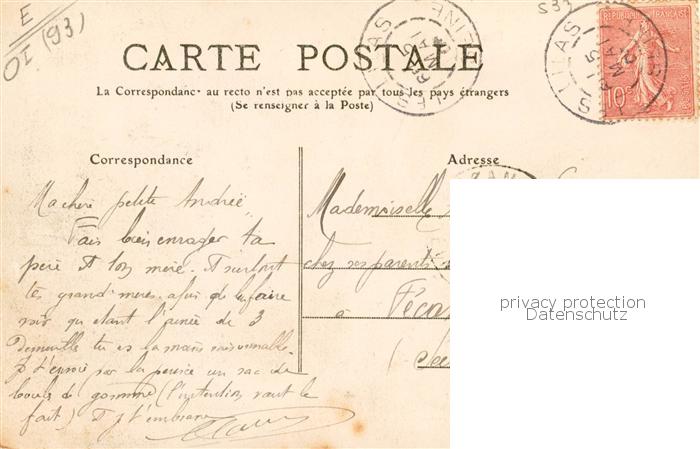 E
OI (93)
533
CARTE POSTALE
La Correspondance au recto n'est pas acceptée par tous les pays étrangers
(Se renseigner à la Poste)
LES LILAS
SEINE
LES LILAS
REPUBLIQUE FRANÇAISE
10c
Correspondance
Ma chère petite Andrée
Fais bien enrager ta
père Et ton mère. Et surtout
tes grand'mères afin de le faire
voir qu'étant l'ainée de 3
tu es la moins raisonnable.
Je t'envoie par la pensée un sac de
boule de gomme (l'intention vaut le
fait) Et je t'embrasse
Adresse
Mademoiselle
chez ses parents
a Féca
(Sei
privacy protection
Datenschutz